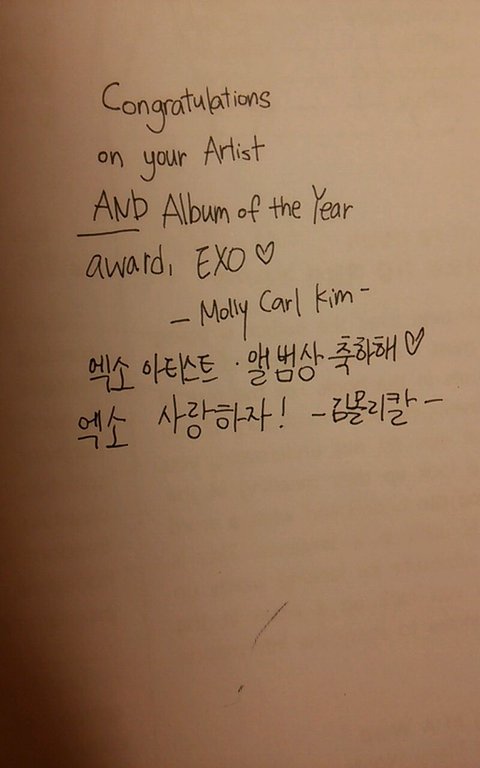 Congratulations
on your Artist
AND Album of the Year
award, EXO ♡
- Molly Carl Kim -
엑소 아티스트 · 앨범상 축하해 ♡
엑소 사랑하자! - 김몰리칼 -